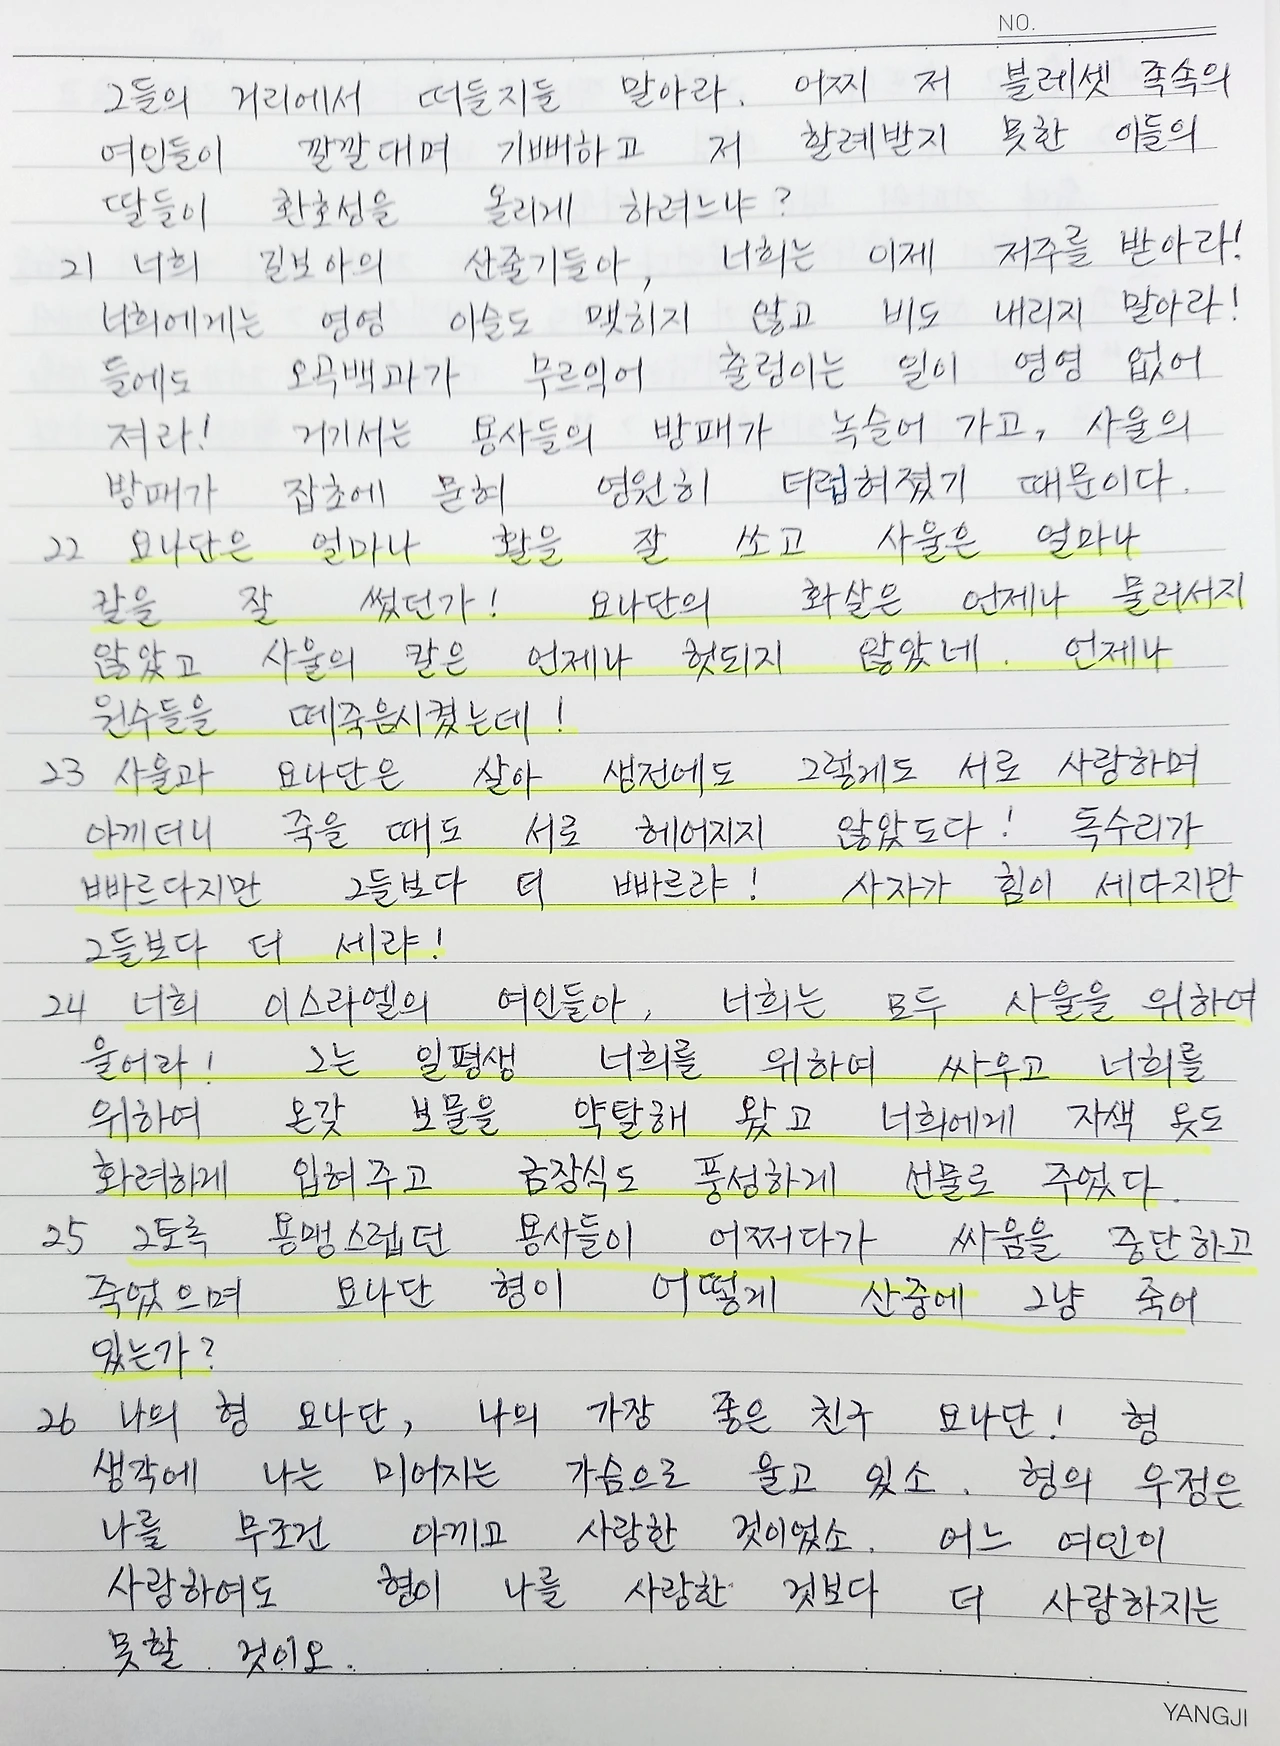 NO.
그들의 거리에서 떠들지들 말아라. 어찌 저 블레셋 족속의
여인들이 깔깔대며 기뻐하고 저 할례받지 못한 이들의
딸들이 환호성을 올리게 하려느냐?
21 너희 길보아의 산줄기들아, 너희는 이제 저주를 받아라!
너희에게는 영영 이슬도 맺히지 않고 비도 내리지 말아라!
들에도 오곡백과가 무르익어 출렁이는 일이 영영 없어
져라! 거기서는 용사들의 방패가 녹슬어 가고, 사울의
방패가 잡초에 묻혀 영원히 더럽혀졌기 때문이다.
22 요나단은 얼마나 활을 잘 쏘고 사울은 얼마나
칼을 잘 썼던가! 요나단의 화살은 언제나 물러서지
않았고 사울의 칼은 언제나 헛되지 않았네. 언제나
원수들을 떼죽음시켰는데!
23 사울과 요나단은 살아 생전에도 그렇게도 서로 사랑하며
아끼더니 죽을 때도 서로 헤어지지 않았도다! 독수리가
빠르다지만 그들보다 더 빠르랴! 사자가 힘이 세다지만
그들보다 더 세랴!
24 너희 이스라엘의 여인들아, 너희는 모두 사울을 위하여
울어라! 그는 일평생 너희를 위하여 싸우고 너희를
위하여 온갖 보물을 약탈해 왔고 너희에게 자색 옷도
화려하게 입혀주고 금장식도 풍성하게 선물로 주었다.
25 그토록 용맹스럽던 용사들이 어쩌다가 싸움을 중단하고
죽었으며 요나단 형이 어떻게 산중에 그냥 죽어
있는가?
26 나의 형 요나단, 나의 가장 좋은 친구 요나단! 형
생각에 나는 미어지는 가슴으로 울고 있소. 형의 우정은
나를 무조건 아끼고 사랑한 것이었소. 어느 여인이
사랑하여도 형이 나를 사랑한 것보다 더 사랑하지는
못할 것이오.
YANGJI